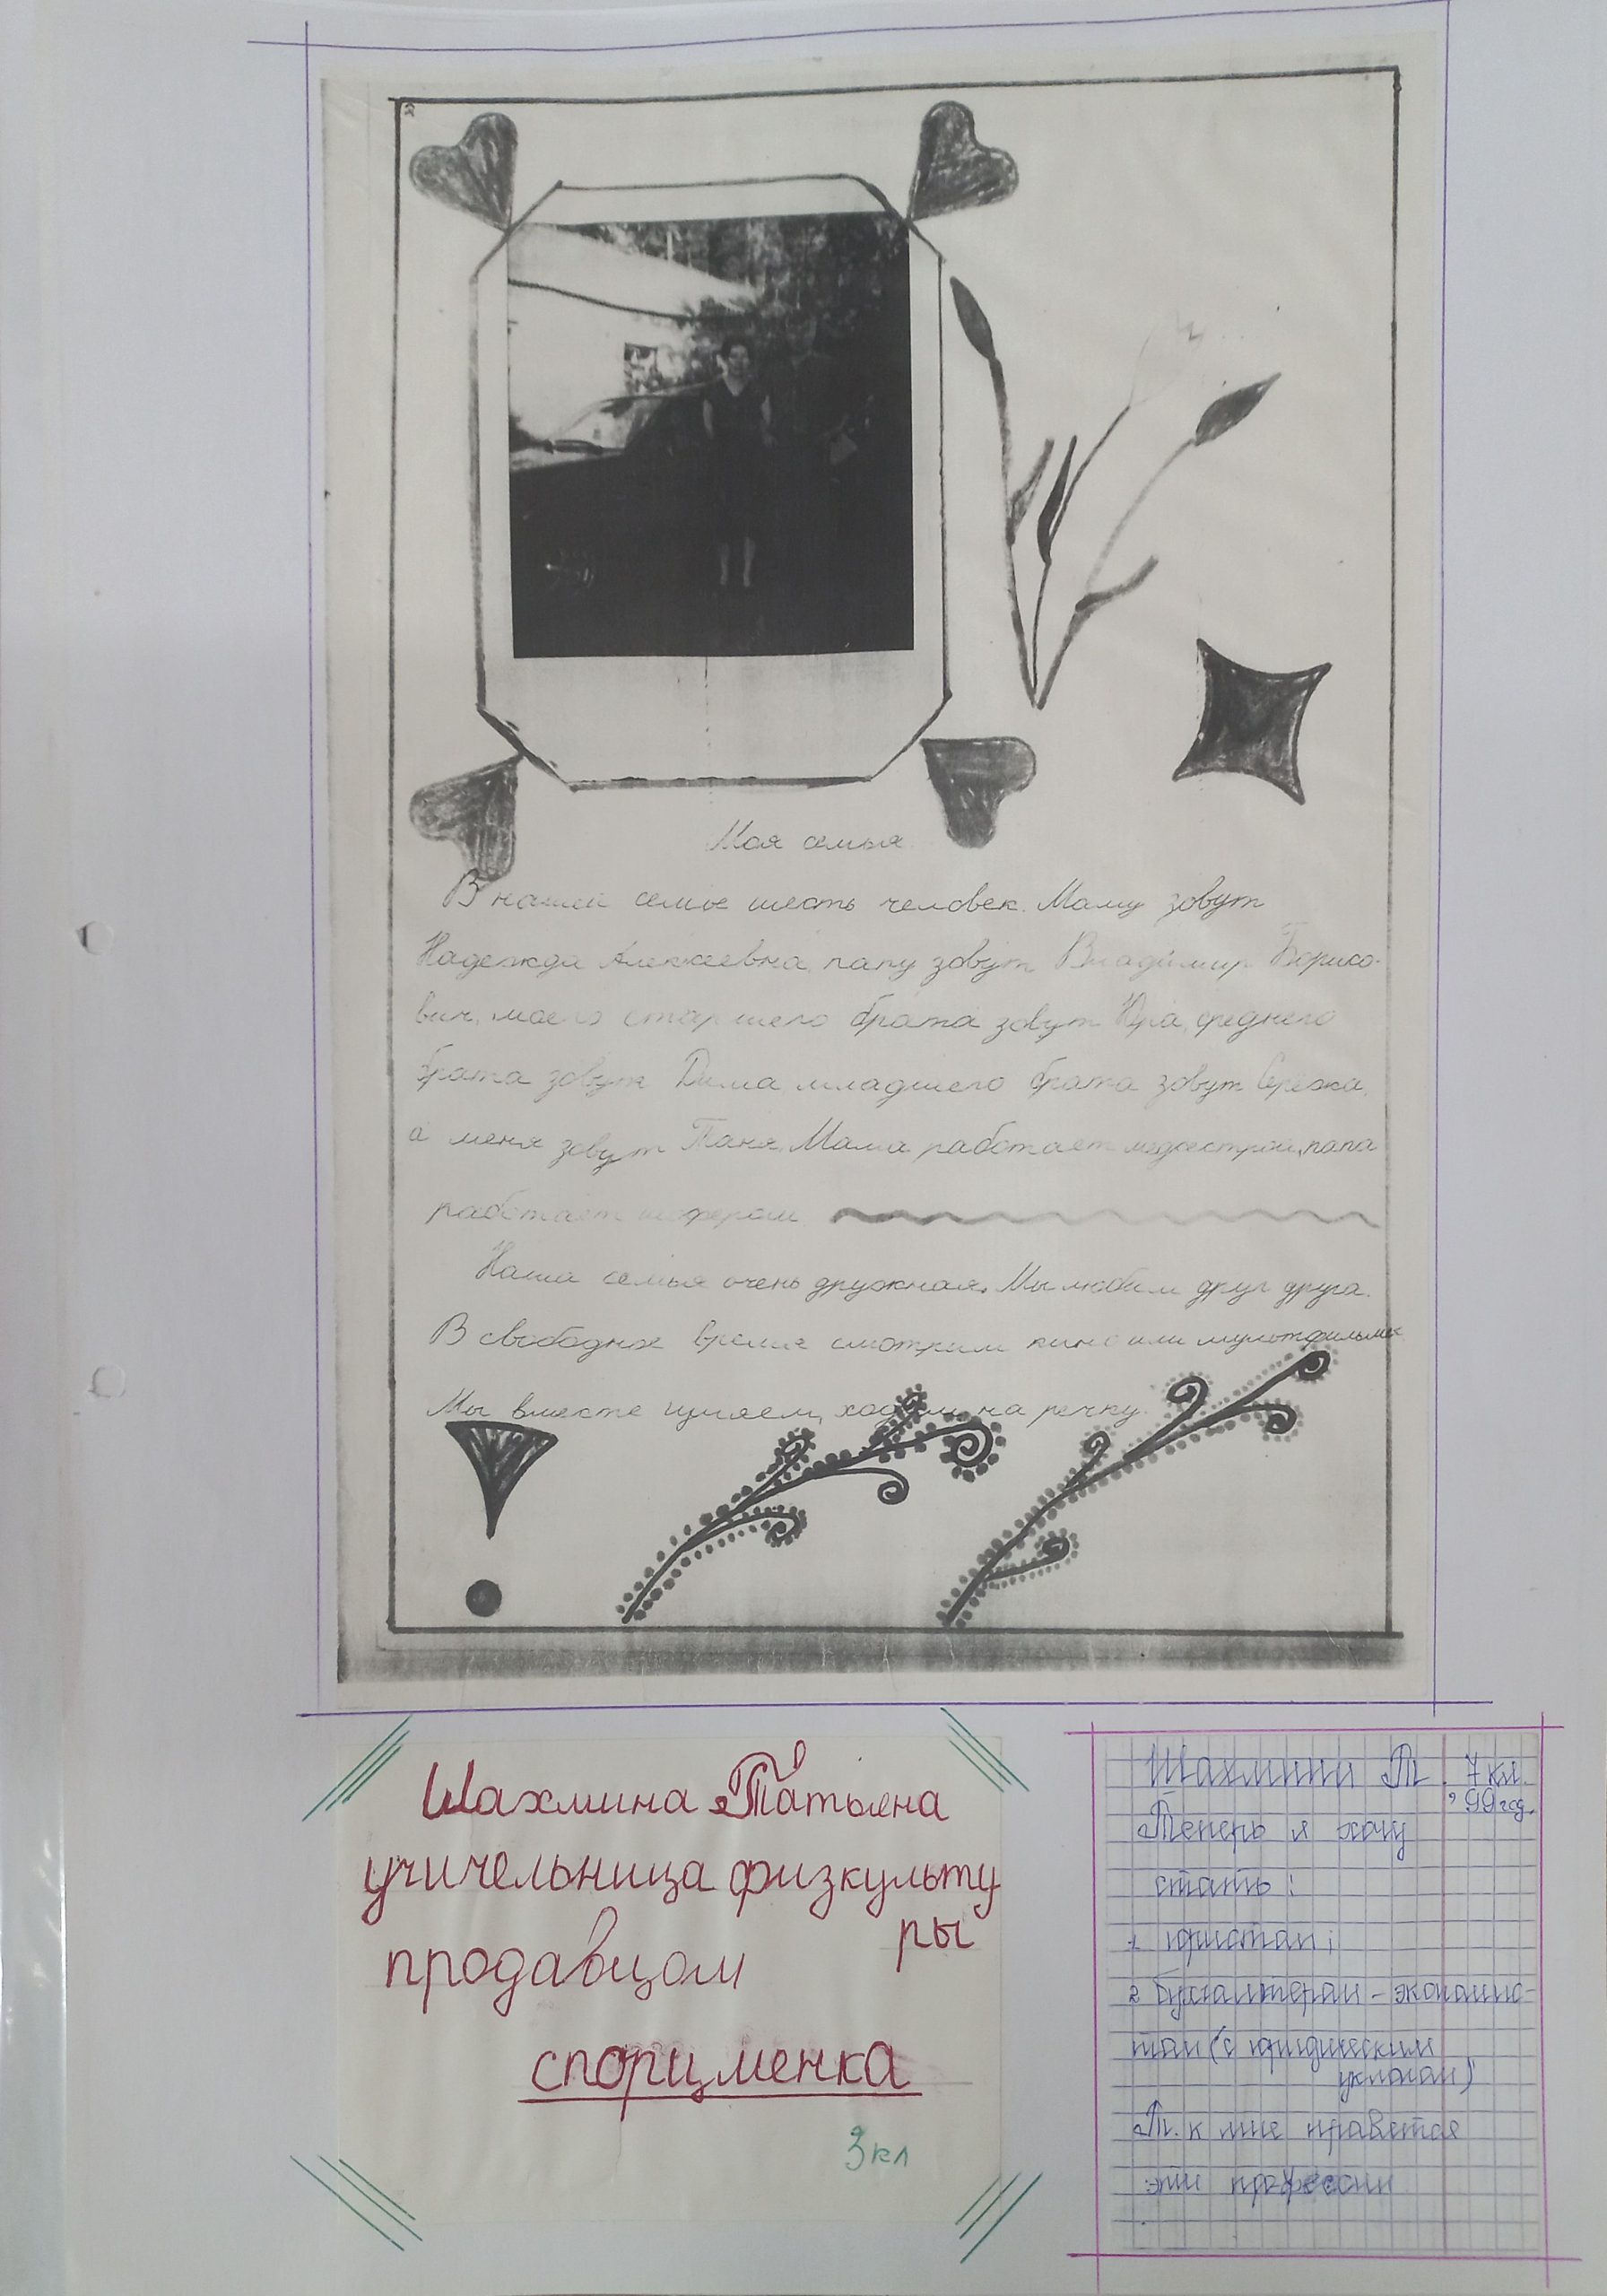 Моя семья
В нашей семье шесть человек. Маму зовут
Надежда Алексеевна, папу зовут Владимир Борисо-
вич, моего старшего брата зовут Юра, среднего
брата зовут Дима, младшего брата зовут Сережа,
а меня зовут Таня. Мама работает медсестрой, папа
работает шофером.
Наша семья очень дружная. Мы любим друг друга.
В свободное время смотрим кино или мультфильмы
Мы вместе гуляем, ходим на речку.
Шахмина Татьяна
учичельница физкульту
ры
продавцом
спорцменка
3кл
Шахмина Т. 7 кл.
, 99 год.
Теперь я хочу
стать:
1 юристом;
2 бухгалтером - экономис-
том (с юридическим
уклоном)
Т. к мне нравятся
эти профессии